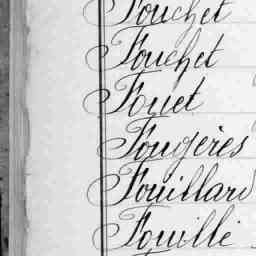 Fouchet
Fouchet
Fouet
Fougères
Fouillard
Fouille